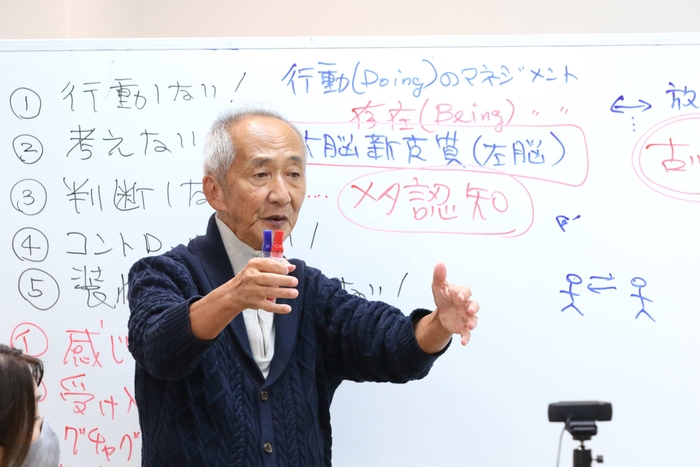 ① 行動しない!
② 考えない
③ 判断しな
④ コントロ
⑤ 装
① 感じ
受け入
グチャグ
行動(Doing)のマネジメント
存在(Being) 〃 〃
大脳新皮質(左脳)
メタ認知
放
古